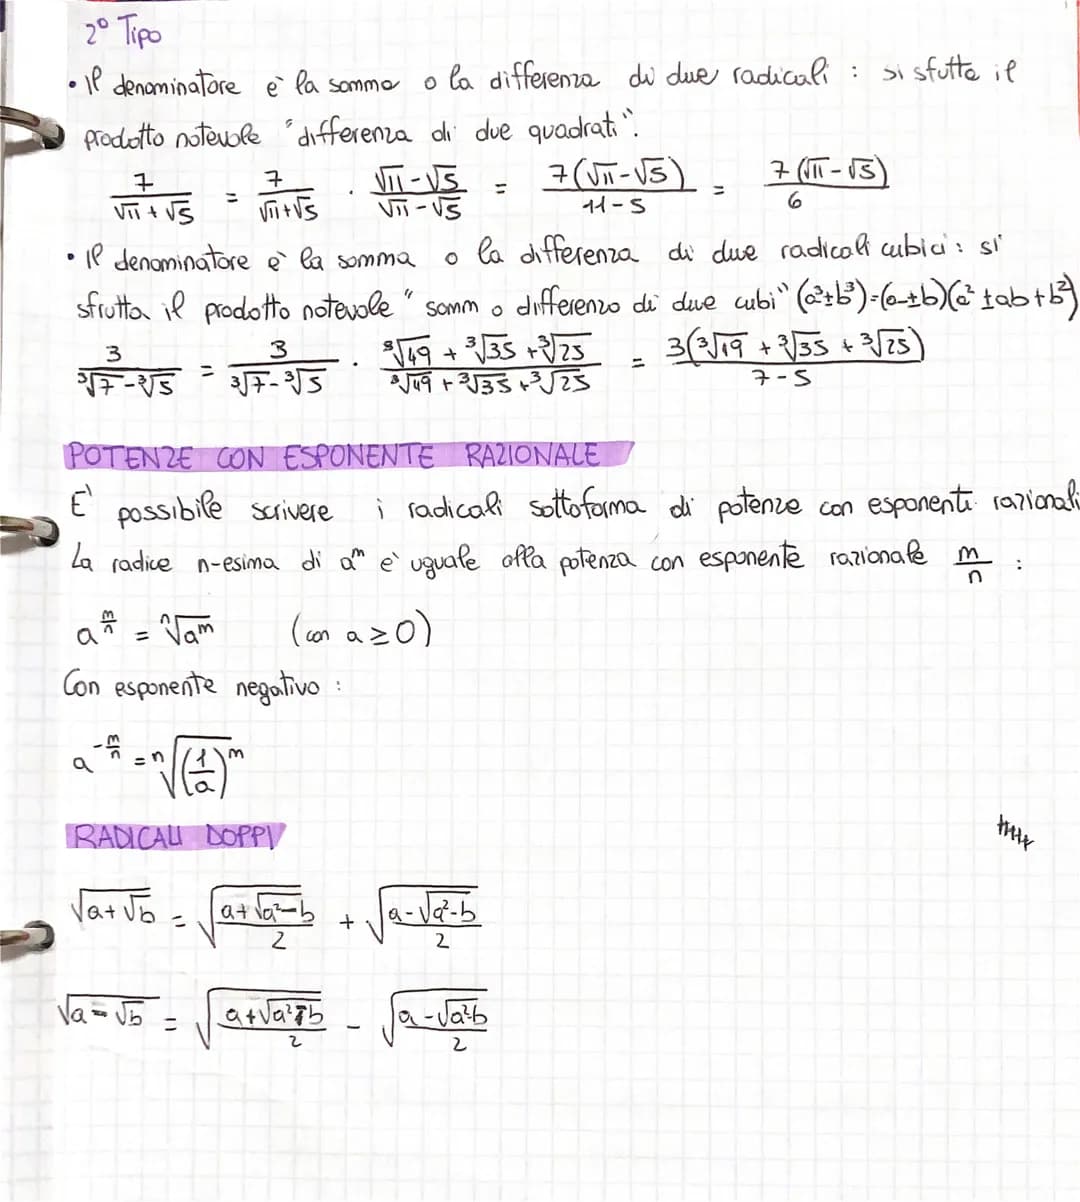 2° Tipo
• Il denominatore è la somma o la differenza di due radicali : si sfutta il
prodotto notevole "differenza di due quadrati".
7/(√11 + √5) = 7/(√11+√5) · (√11-√5)/(√11-√5) = 7(√11-√5)/(11-5) = 7(√11-√5)/6
• Il denominatore è la somma o la differenza di due radicali cubici : si
sfrutta il prodotto notevole "somm o differenzo di due cubi" (a³±b³)=(a±b)(a²±ab+b²)
3/(³√7-³√5) = 3/(³√7-³√5) · (³√49 + ³√35 + ³√25)/(³√49 + ³√35 + ³√25) = 3(³√19 + ³√35 + ³√25)/(7-5)
POTENZE CON ESPONENTE RAZIONALE
E' possibile scrivere i radicali sottoforma di potenze con esponenti razionali
La radice n-esima di aᵐ e' uguale alla potenza con esponente razionale m/n :
a^(m/n) = ⁿ√aᵐ (con a ≥ 0)
Con esponente negativo :
a^(-m/n) = ⁿ√(1/a)ᵐ
RADICALI DOPPI
√(a+√b) = √((a+√(a²-b))/2) + √((a-√(a²-b))/2)
√(a-√b) = √((a+√(a²-b))/2) - √((a-√(a²-b))/2)